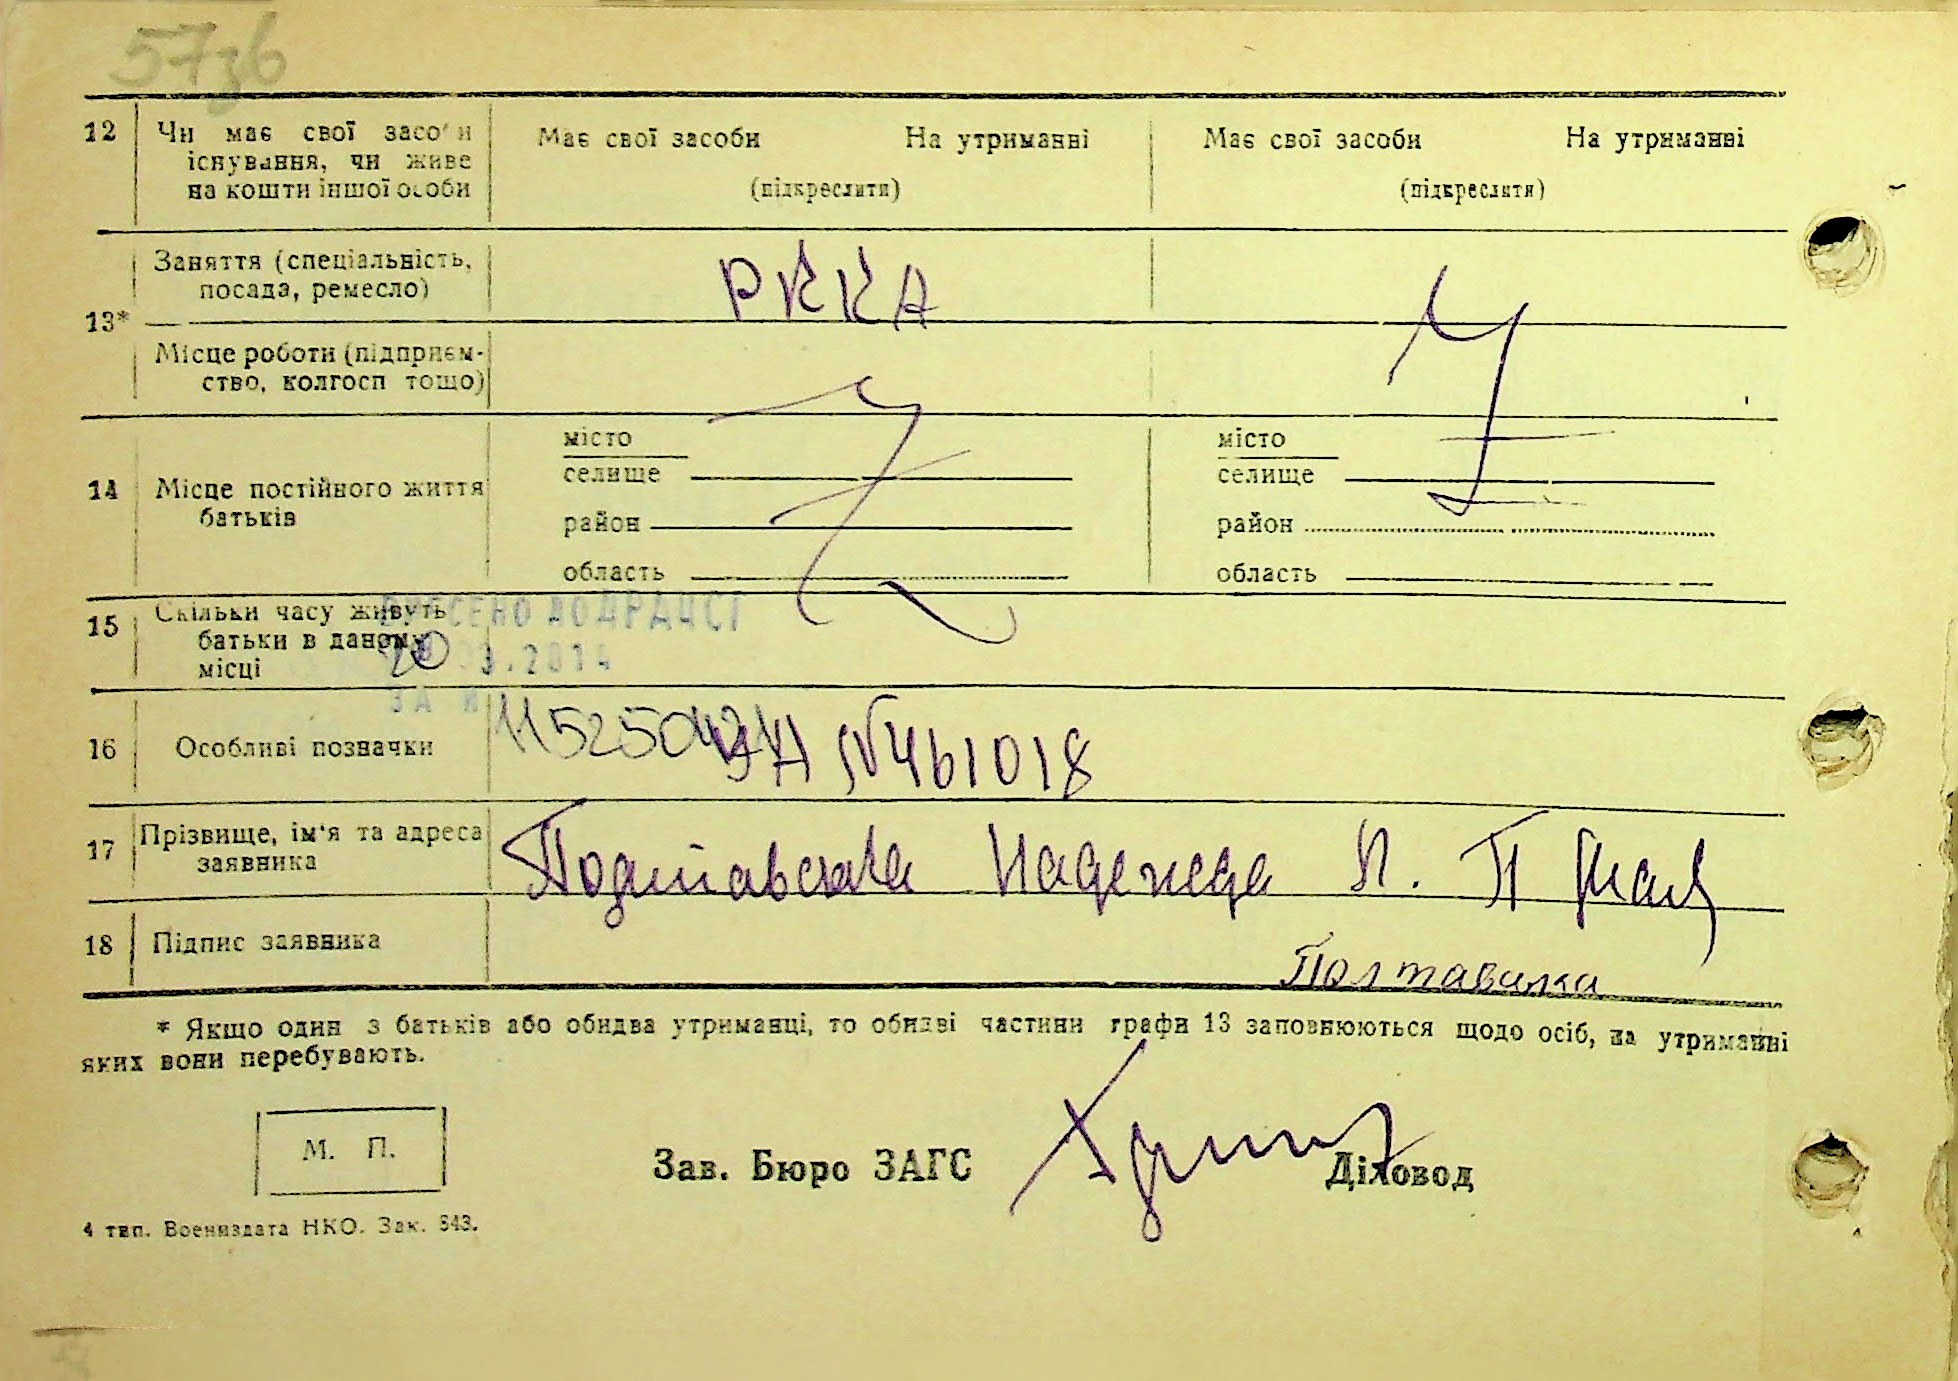 57зб
12 Чи має свої засоби Має свої засоби На утриманні Має свої засоби На утриманні
існування, чи живе
на кошти іншої особи (підкреслити) (підкреслити)
Заняття (спеціальність, РККА
посада, ремесло)
13*
Місце роботи (підприєм-
ство, колгосп тощо)
місто місто
селище селище
14 Місце постійного життя
батьків
район район
область область
15 Скільки часу живуть
батьки в даному
місці
ВНЕСЕНО ДО ДРАЦСГ
20 3.2014
ЗА №
16 Особливі позначки №461018
17 Прізвище, ім'я та адреса
заявника
Надежда П.
18 Підпис заявника
* Якщо один з батьків або обидва утриманці, то обидві частини графи 13 заповнюються щодо осіб, на утриманні
яких вони перебувають.
М. П.
Зав. Бюро ЗАГС Діловод
4 тип. Воениздата НКО. Зак. 843.